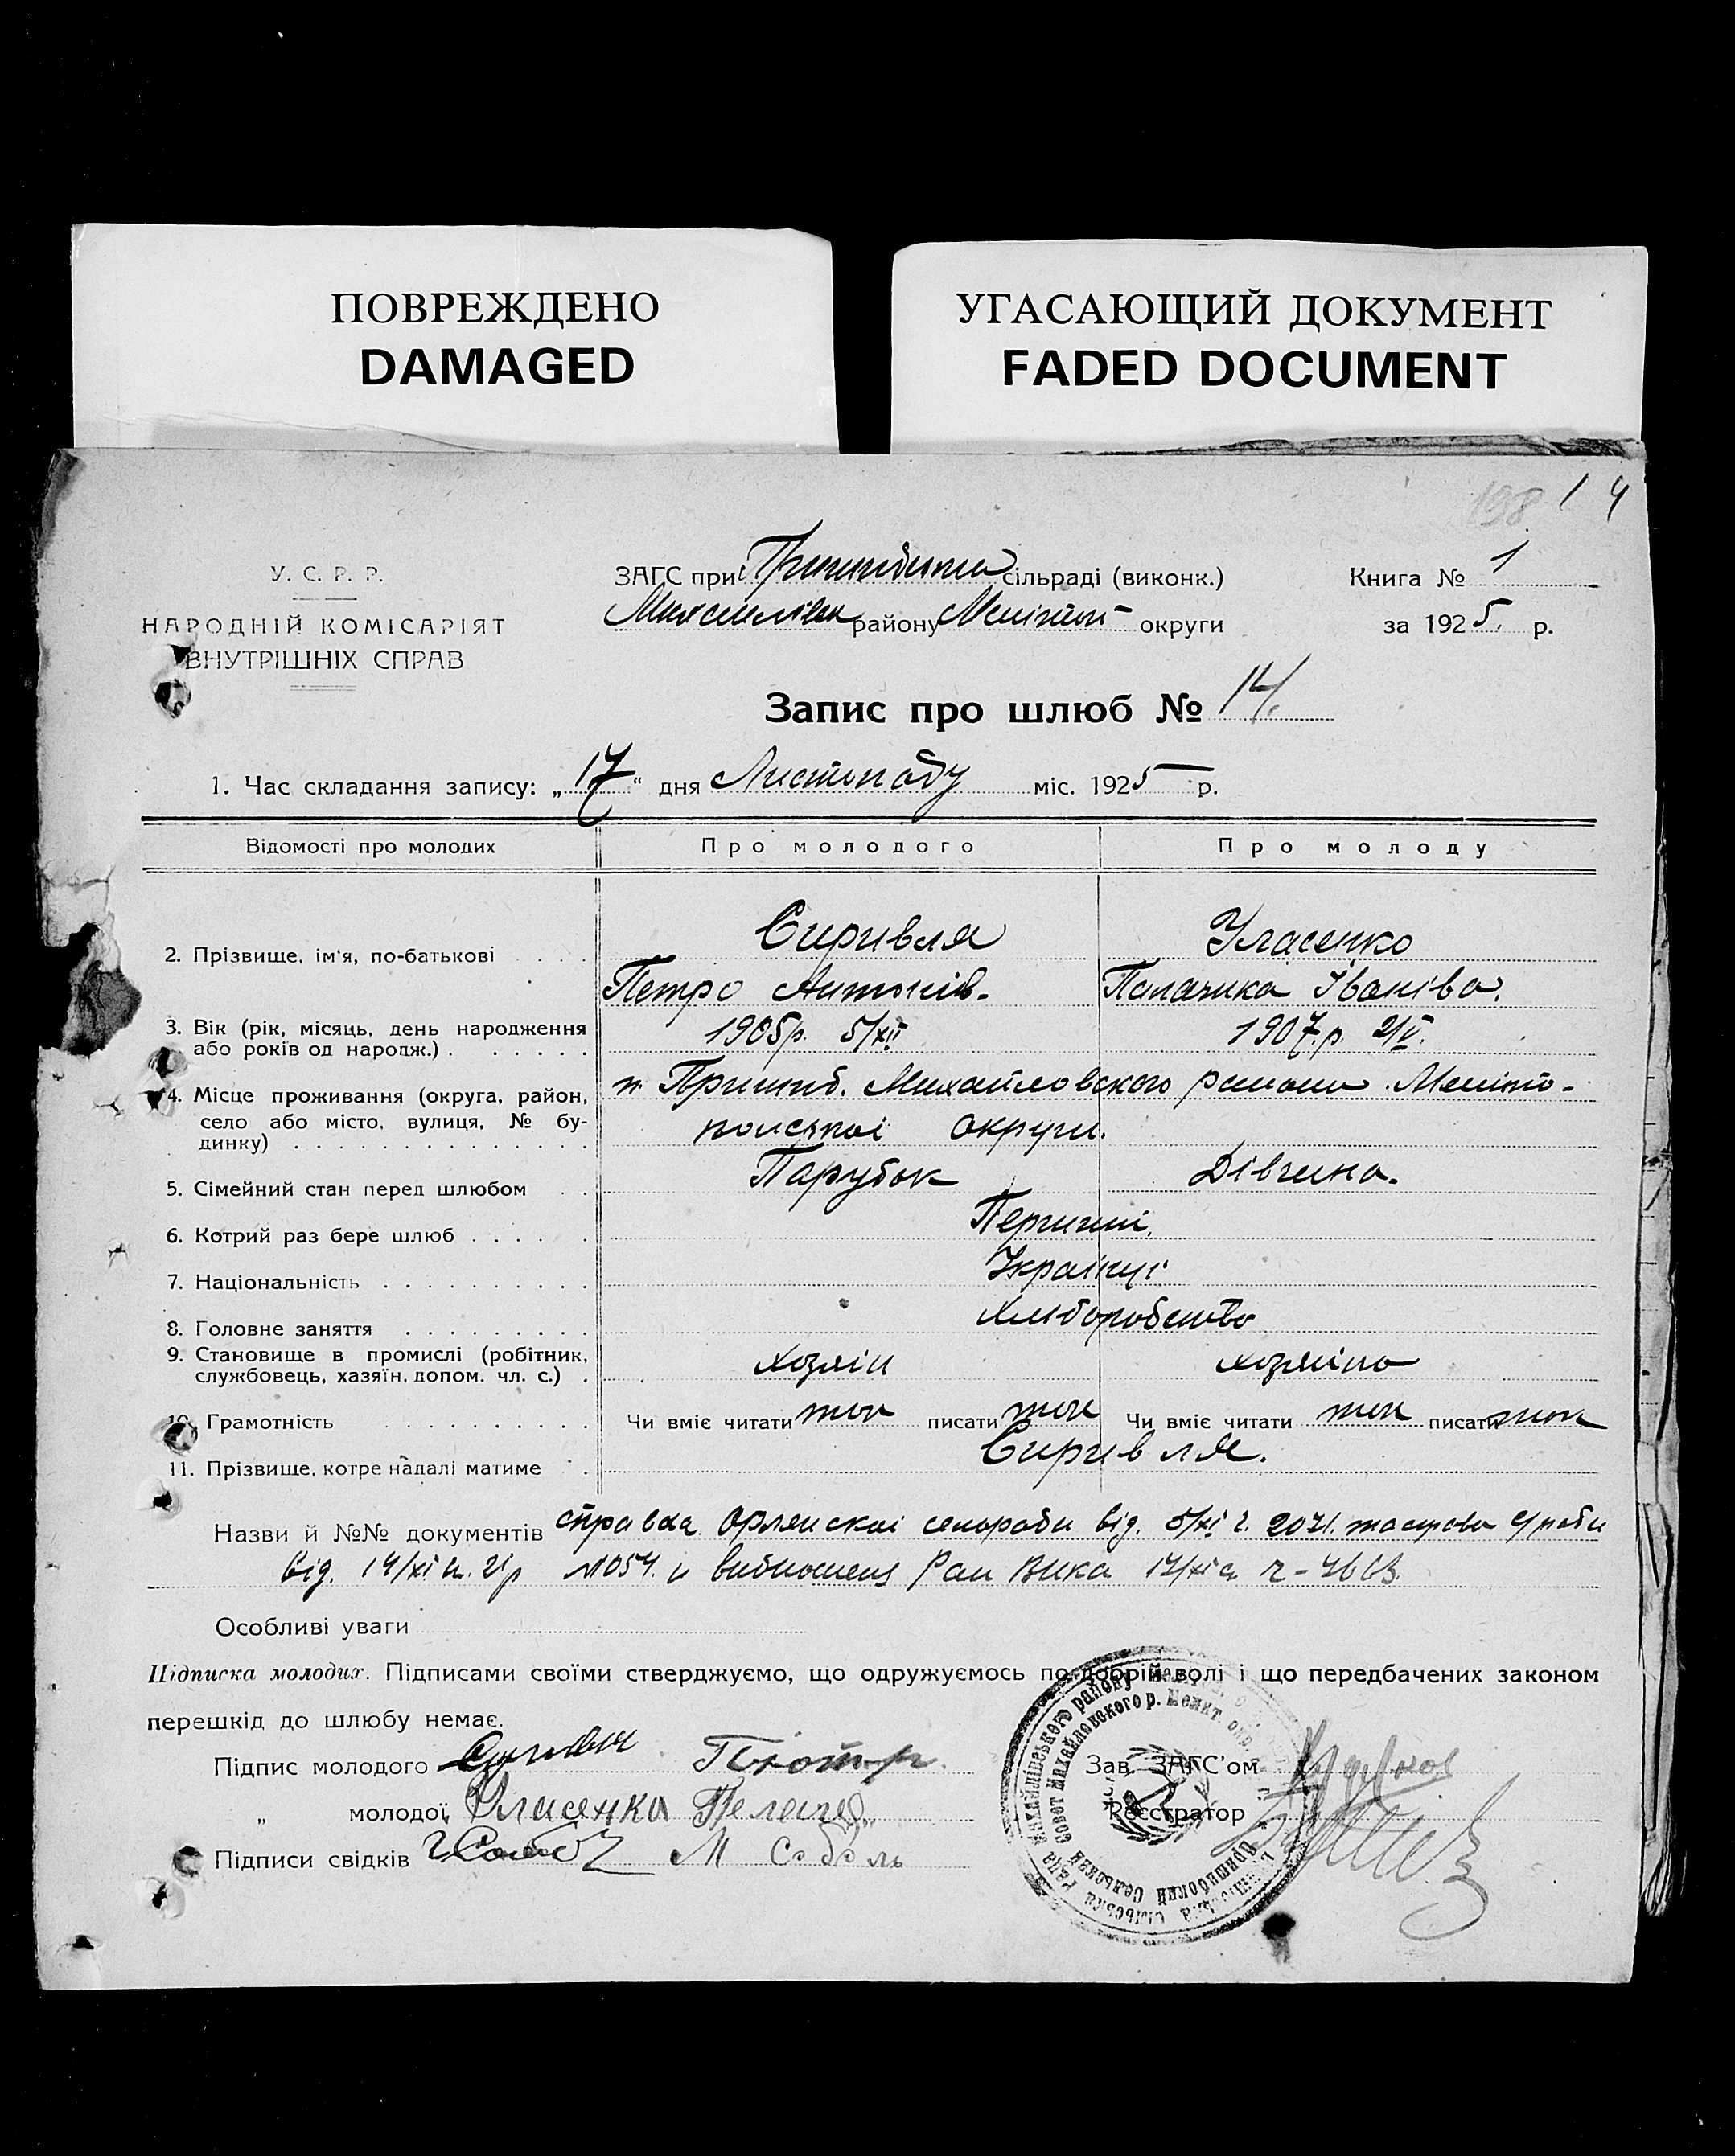 ПОВРЕЖДЕНО
DAMAGED
УГАСАЮЩИЙ ДОКУМЕНТ
FADED DOCUMENT
198 14
У. С. Р. Р.
НАРОДНІЙ КОМІСАРІЯТ
ВНУТРІШНІХ СПРАВ
ЗАГС при сільраді (виконк.)
району округи
Книга № 1
за 1925. р.
Запис про шлюб № 14.
1. Час складання запису: „17“ дня Листопаду міс. 1925 р.
Відомості про молодих Про молодого Про молоду
2. Прізвище, ім'я, по-батькові Сиривля Уласенко
Петро Антонів. Палажка Іванівa.
3. Вік (рік, місяць, день народження 1905р. 5/XII 1907.р. 2/V.
або років од народж.)
4. Місце проживання (округа, район, Пришиб. Михайловского району Меліто-
село або місто, вулиця, № бу- польскої округи.
динку)
5. Сімейний стан перед шлюбом Парубок Дівчина.
6. Котрий раз бере шлюб Перший.
7. Національність Українці
8. Головне заняття хліборобство
9. Становище в промислі (робітник, хозяін хозяіна
службовець, хазяїн, допом. чл. с.)
10. Грамотність Чи вміє читати так писати так Чи вміє читати так писати так
11. Прізвище, котре надалі матиме Сиривля.
Назви й №№ документів справка Орлянскої сельради від. 5/XI
від. 14/XI
Особливі уваги
Підписка молодих. Підписами своїми стверджуємо, що одружуємось по добрій волі і що передбачених законом
перешкід до шлюбу немає.
Підпис молодого
„ молодої Уласенка Пелагея
Підписи свідків М Соболь
Зав. ЗАГС'ом
Реєстратор
Михайлівського району
Совет Михайловского р. Мелит. окр.
Пришибский Сельский
Сільська Рада